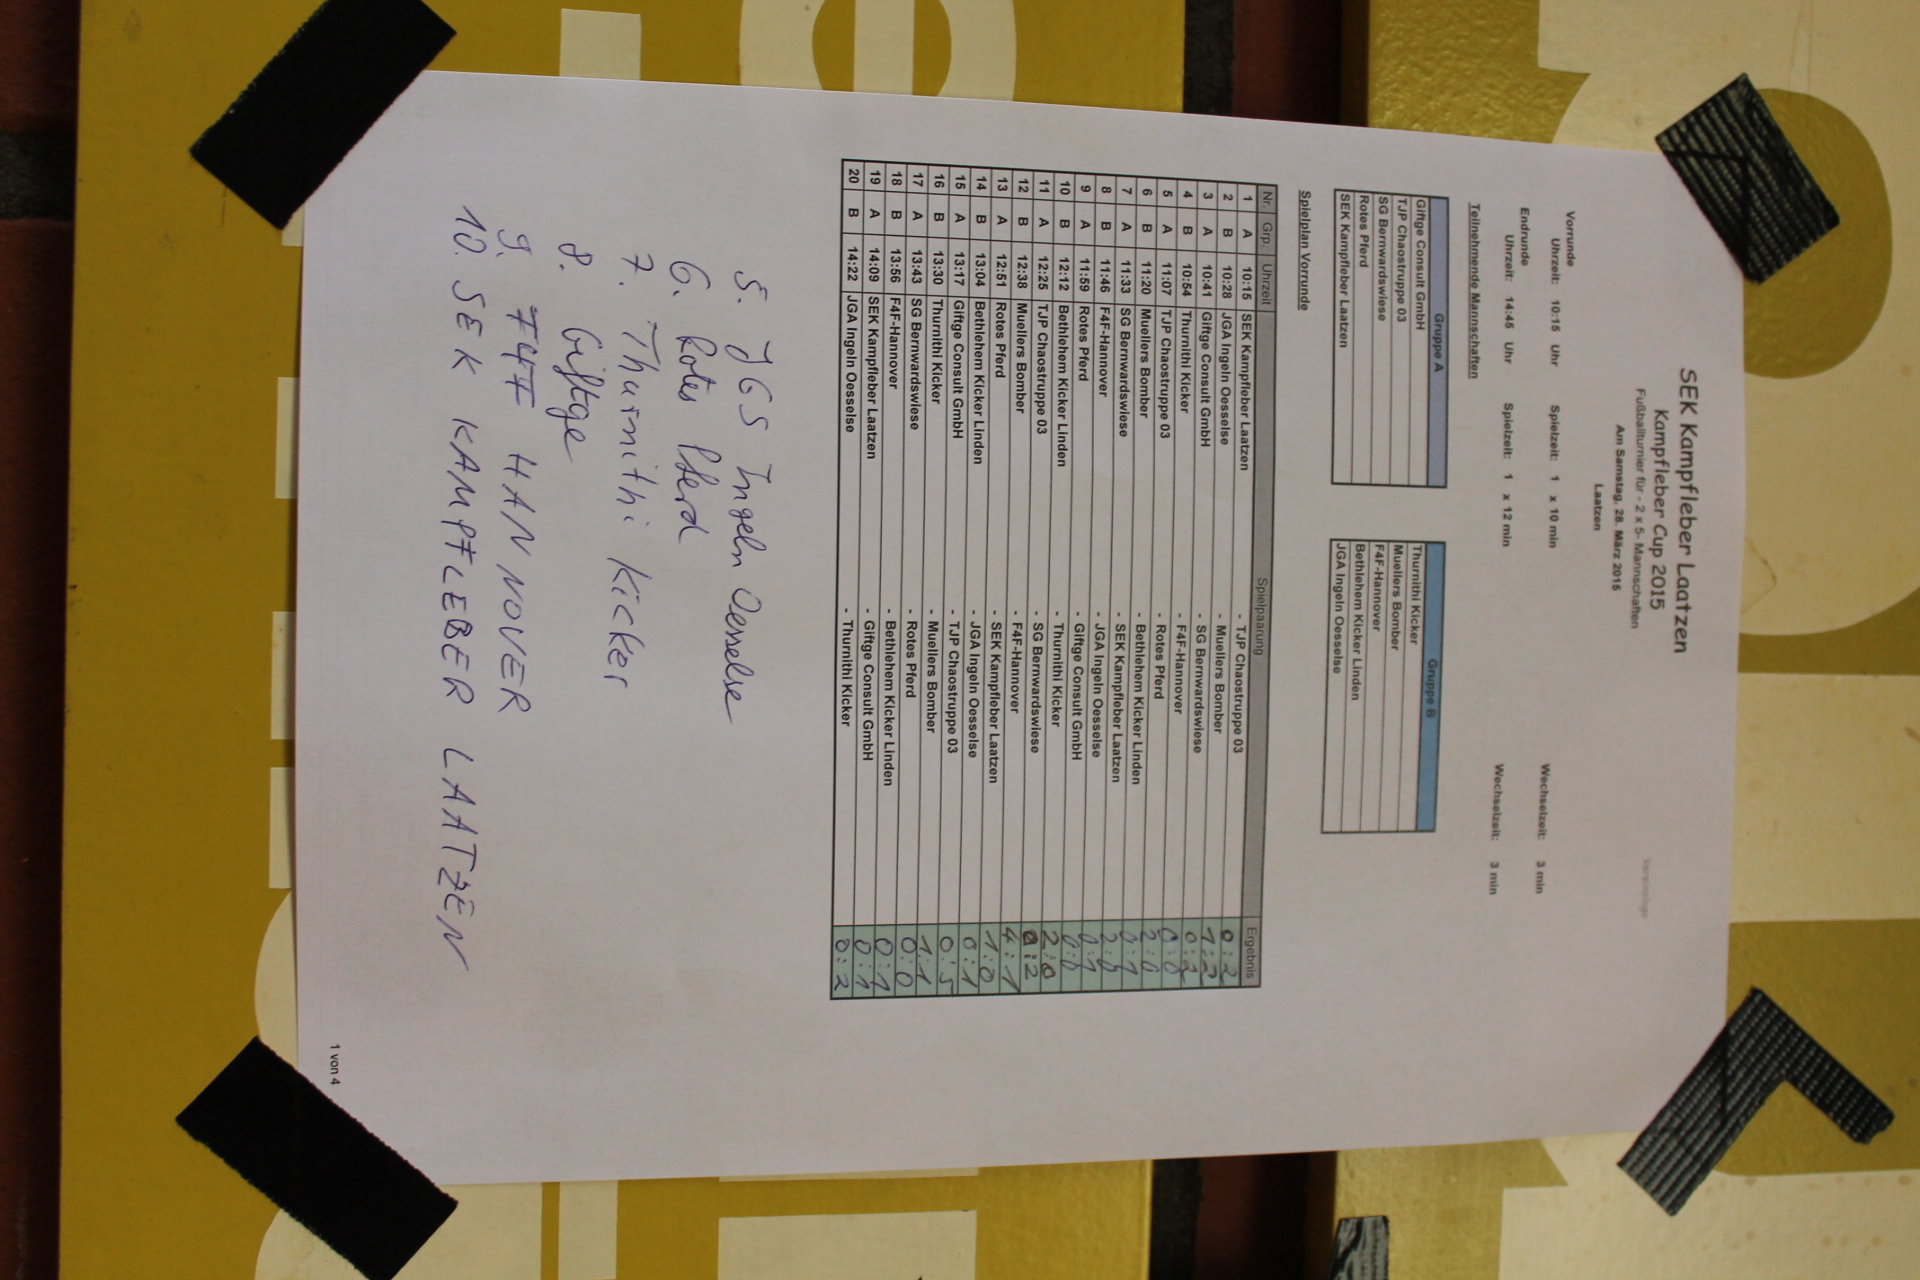 SEK Kampfleber Laatzen
Kampfleber Cup 2015
Fußballturnier für - 2 x 5- Mannschaften
Am Samstag, 28. März 2015
Laatzen
Vereinslogo
Vorrunde
Uhrzeit: 10:15 Uhr Spielzeit: 1 x 10 min Wechselzeit: 3 min
Endrunde
Uhrzeit: 14:45 Uhr Spielzeit: 1 x 12 min Wechselzeit: 3 min
Teilnehmende Mannschaften
Gruppe A
Giftge Consult GmbH
TJP Chaostruppe 03
SG Bernwardswiese
Rotes Pferd
SEK Kampfleber Laatzen
Gruppe B
Thurnithi Kicker
Muellers Bomber
F4F-Hannover
Bethlehem Kicker Linden
JGA Ingeln Oesselse
Spielplan Vorrunde
Nr. Grp. Uhrzeit Spielpaarung Ergebnis
1 A 10:15 SEK Kampfleber Laatzen - TJP Chaostruppe 03 0:2
2 B 10:28 JGA Ingeln Oesselse - Muellers Bomber 1:2
3 A 10:41 Giftge Consult GmbH - SG Bernwardswiese 0:2
4 B 10:54 Thurnithi Kicker - F4F-Hannover 0:0
5 A 11:07 TJP Chaostruppe 03 - Rotes Pferd 2:0
6 B 11:20 Muellers Bomber - Bethlehem Kicker Linden 0:1
7 A 11:33 SG Bernwardswiese - SEK Kampfleber Laatzen 2:0
8 B 11:46 F4F-Hannover - JGA Ingeln Oesselse 0:1
9 A 11:59 Rotes Pferd - Giftge Consult GmbH 0:0
10 B 12:12 Bethlehem Kicker Linden - Thurnithi Kicker 2:0
11 A 12:25 TJP Chaostruppe 03 - SG Bernwardswiese 0:2
12 B 12:38 Muellers Bomber - F4F-Hannover 4:1
13 A 12:51 Rotes Pferd - SEK Kampfleber Laatzen 1:0
14 B 13:04 Bethlehem Kicker Linden - JGA Ingeln Oesselse 0:1
15 A 13:17 Giftge Consult GmbH - TJP Chaostruppe 03 0:5
16 B 13:30 Thurnithi Kicker - Muellers Bomber 1:1
17 A 13:43 SG Bernwardswiese - Rotes Pferd 0:0
18 B 13:56 F4F-Hannover - Bethlehem Kicker Linden 0:1
19 A 14:09 SEK Kampfleber Laatzen - Giftge Consult GmbH 0:1
20 B 14:22 JGA Ingeln Oesselse - Thurnithi Kicker 0:2
5. JGS Ingeln Oesselse
6. Rotes Pferd
7. Thurnithi Kicker
8. Giftge
9. F4F HANNOVER
10. SEK KAMPFLEBER LAATZEN
1 von 4